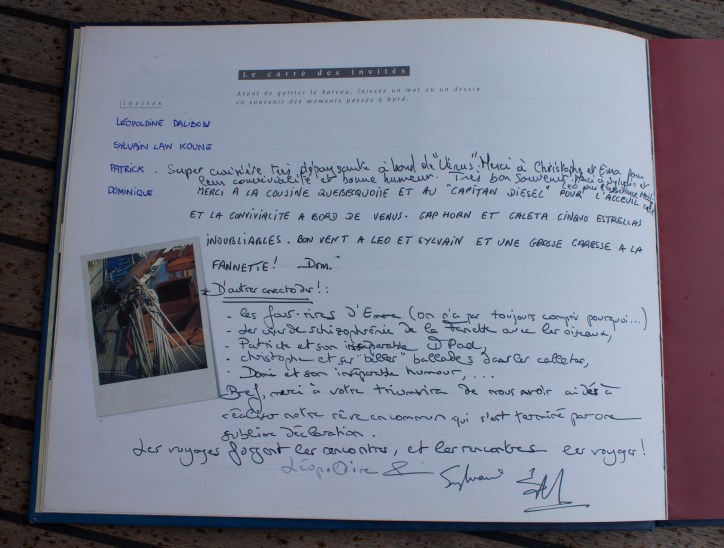 Le carré des invités
Avant de quitter le bateau, laissez un mot ou un dessin
en souvenir des moments passés à bord.
invités
LÉOPOLDINE DALIBON
SYLVAIN LAW KOUNE
PATRICK . Super croisière très dépaysante à bord de "Vénus". Merci à Christophe et Ema pour
leur convivialité et bonne humeur. Très bon souvenir. Merci à Sylvain et
Léo pour
DOMINIQUE MERCI A LA COUSINE QUEBEQUOIIE ET AU "CAPITAN DIESEL" POUR L'ACCEUIL
ET LA CONVIVIALITE A BORD DE VENUS. CAP HORN ET CALETA CINQUO ESTRELLAS
INOUBLIABLES. BON VENT A LEO ET SYLVAIN ET UNE GROSSE CARESSE A LA
FANNETTE! Dom.
D'autres anectodes! :
- les fous-rires d'Emma (on n'a pas toujours compris pourquoi...)
- des de schizophrénie de la Fanette avec les oiseaux,
- Patrick et son inséparable I Pad,
- christophe et ses "belles" ballades dans les calletas,
- Domi et son inséparable humour, ...
Bref, merci à votre triumvira de nous avoir aidés à
réaliser notre rêve en commun qui s'est terminé par une
sublime déclaration.
Les voyages forgent les rencontres, et les rencontres les voyages!
Léopoldine & Sylvain